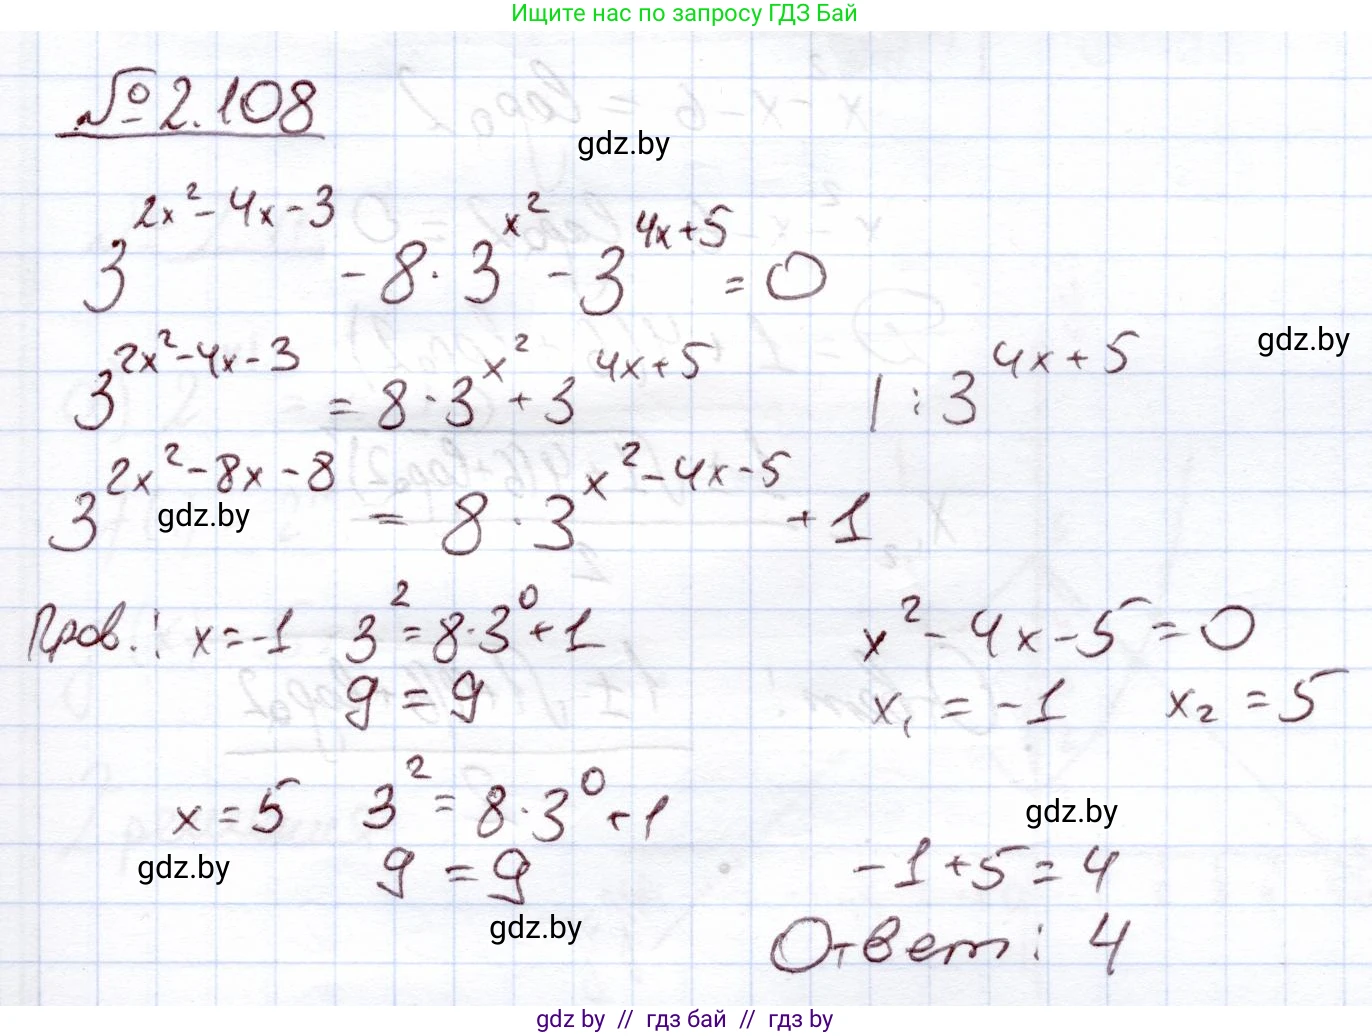 Ищите нас по запросу ГДЗ Бай
№ 2.108
gdz.by
3^(2x²-4x-3) - 8·3^(x²) - 3^(4x+5) = 0
gdz.by
3^(2x²-4x-3) = 8·3^(x²) + 3^(4x+5) | : 3^(4x+5)
3^(2x²-8x-8) = 8·3^(x²-4x-5) + 1
gdz.by
Пров.: x=-1 3² = 8·3⁰+1 x²-4x-5=0
9 = 9 x₁ = -1 x₂ = 5
x = 5 3² = 8·3⁰+1
gdz.by
gdz.by
9 = 9 -1+5=4
gdz.by
Ответ: 4
gdz by // гдз бай // гдз by